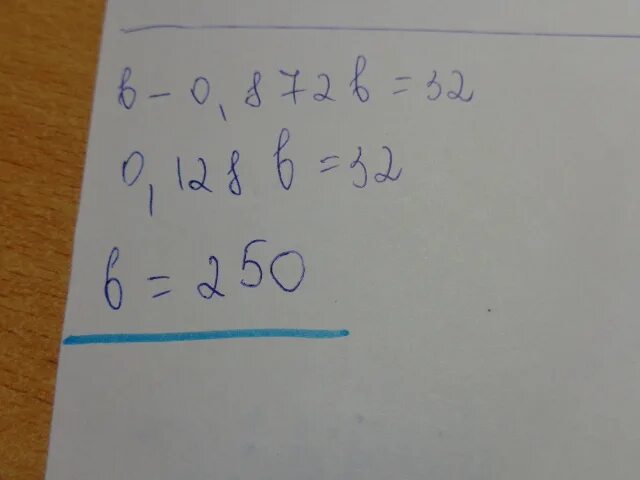 b - 0,872b = 32
0,128b = 32
b = 250